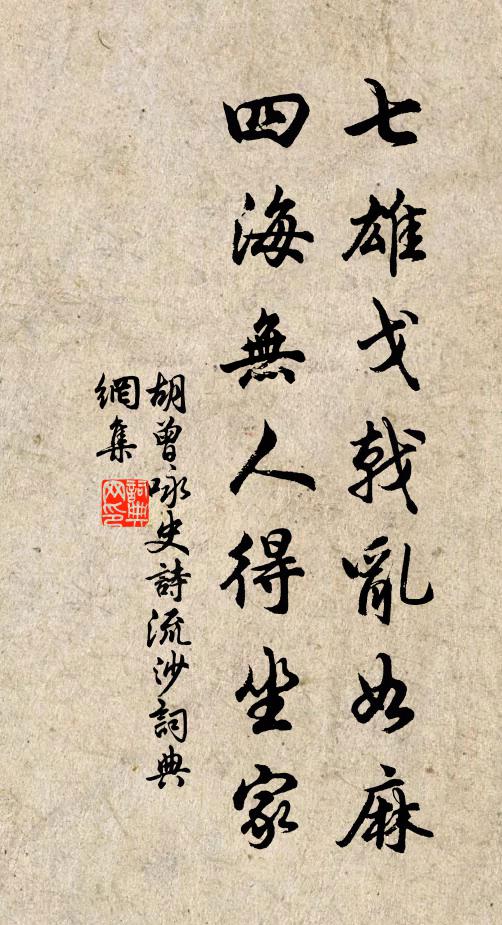 七雄戈戟亂如麻
四海無人得坐家
胡曾咏史詩流沙詞典
網集
詞典
网印